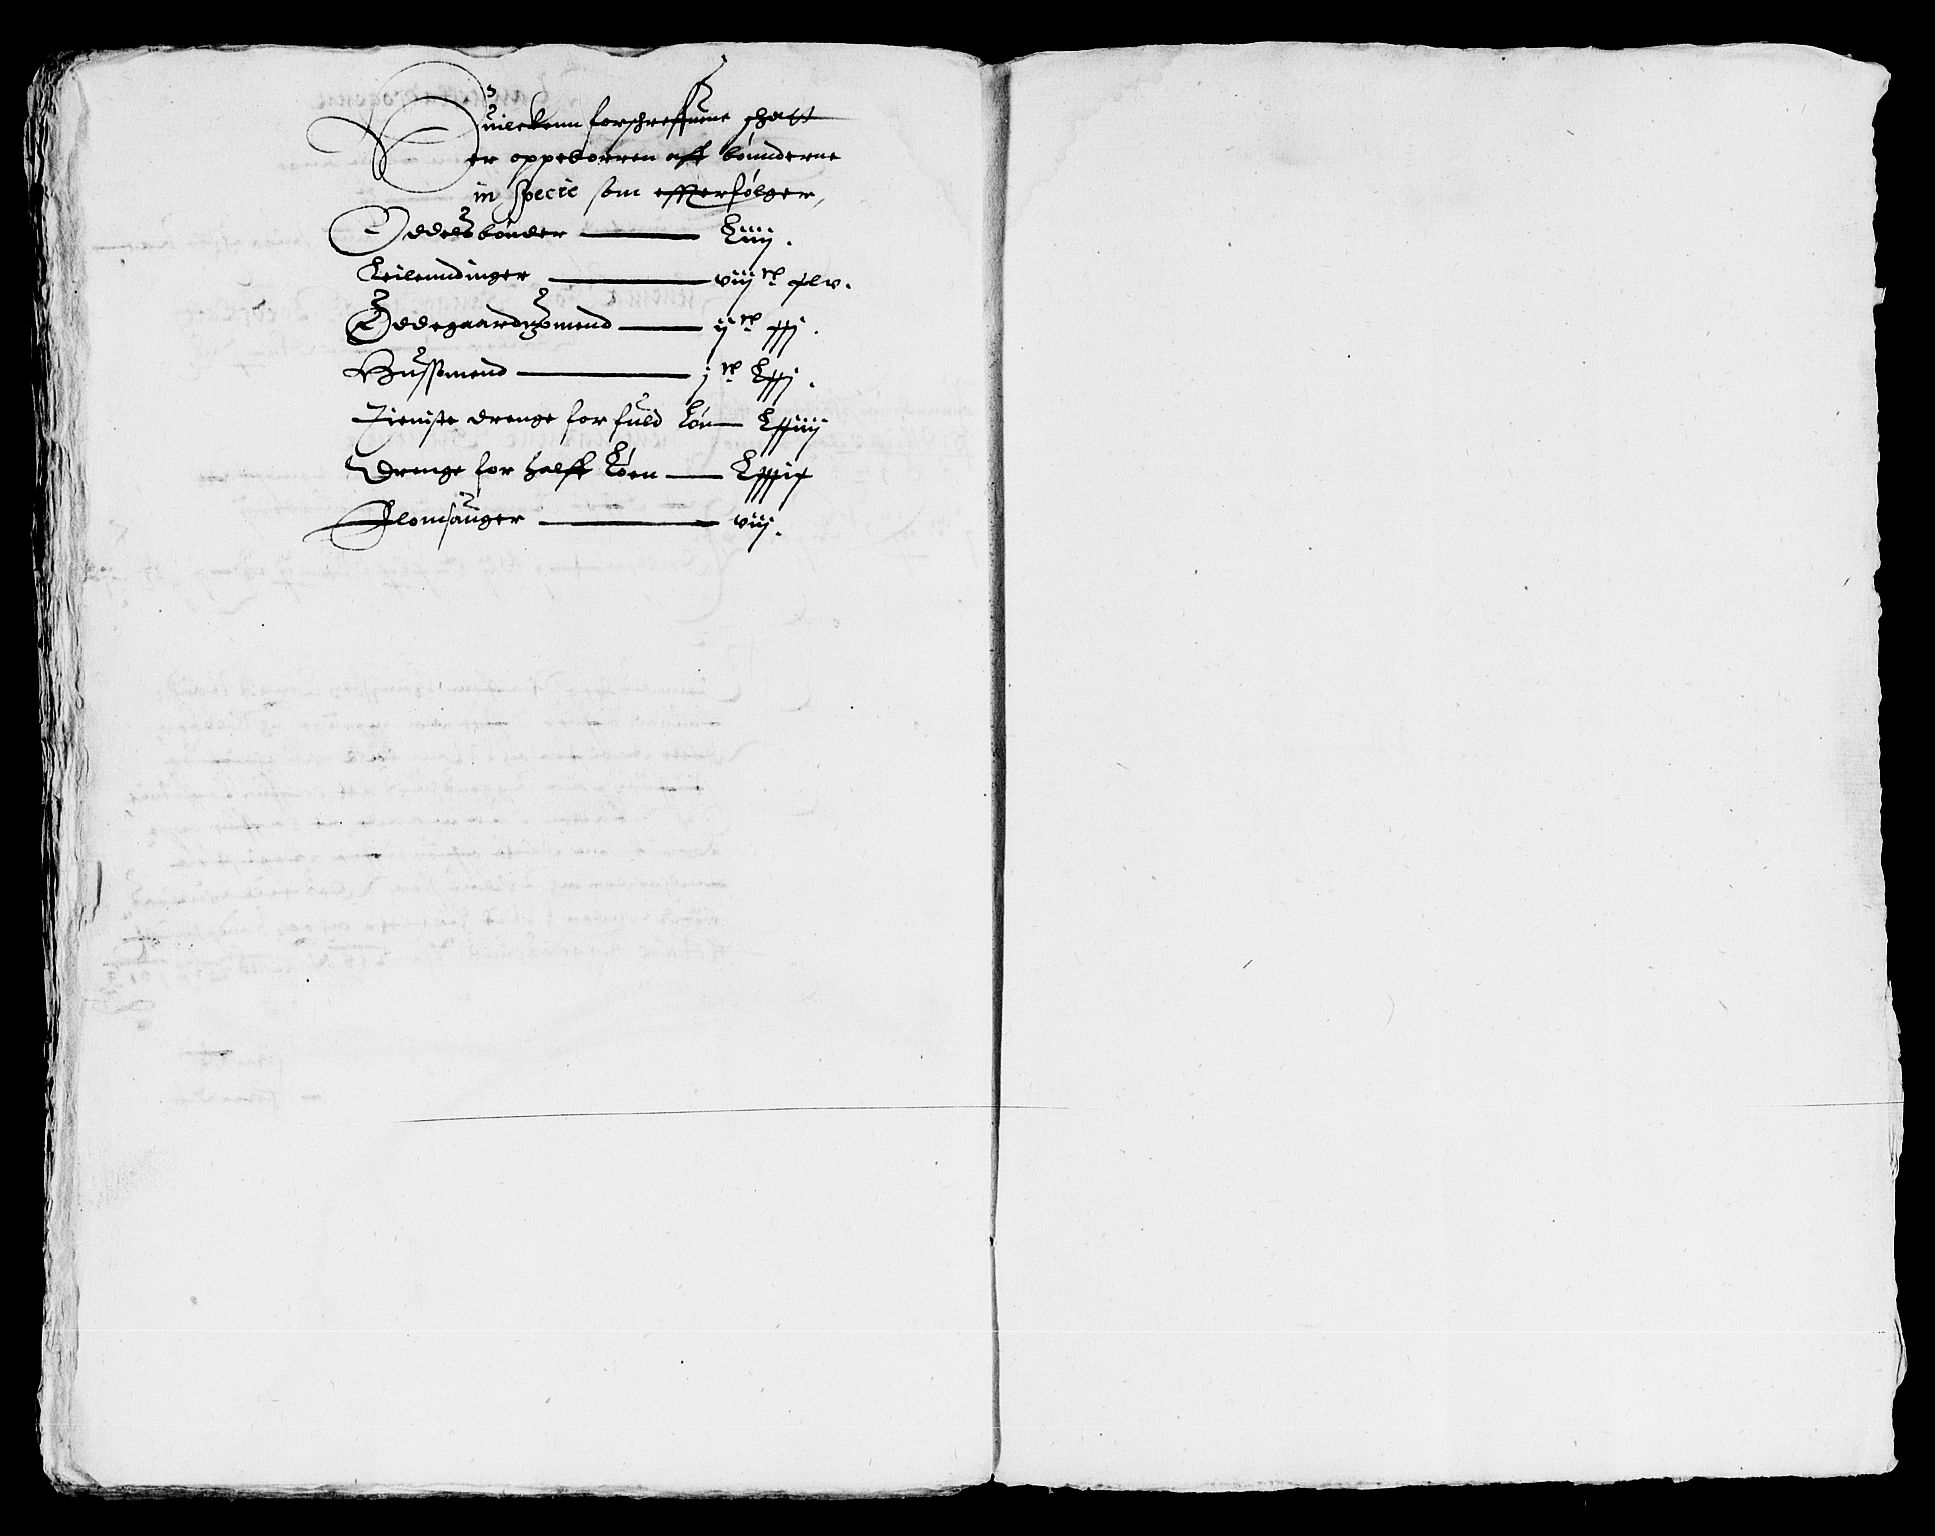 Huilckenn forschreffuene schatt
er oppeborren aff bønnderne
in specie som effterfølger,
Oddelsbønder — Liiij.
Leilenndinger — viij c xlv.
Ødegaardzmend — ij c xxj.
Hussmend — j c Lxxj.
Tieniste drenge for fuld Løn — Lxxiiij
Drenge for halff Løen — Lxxxix
Flomsauger — viij.